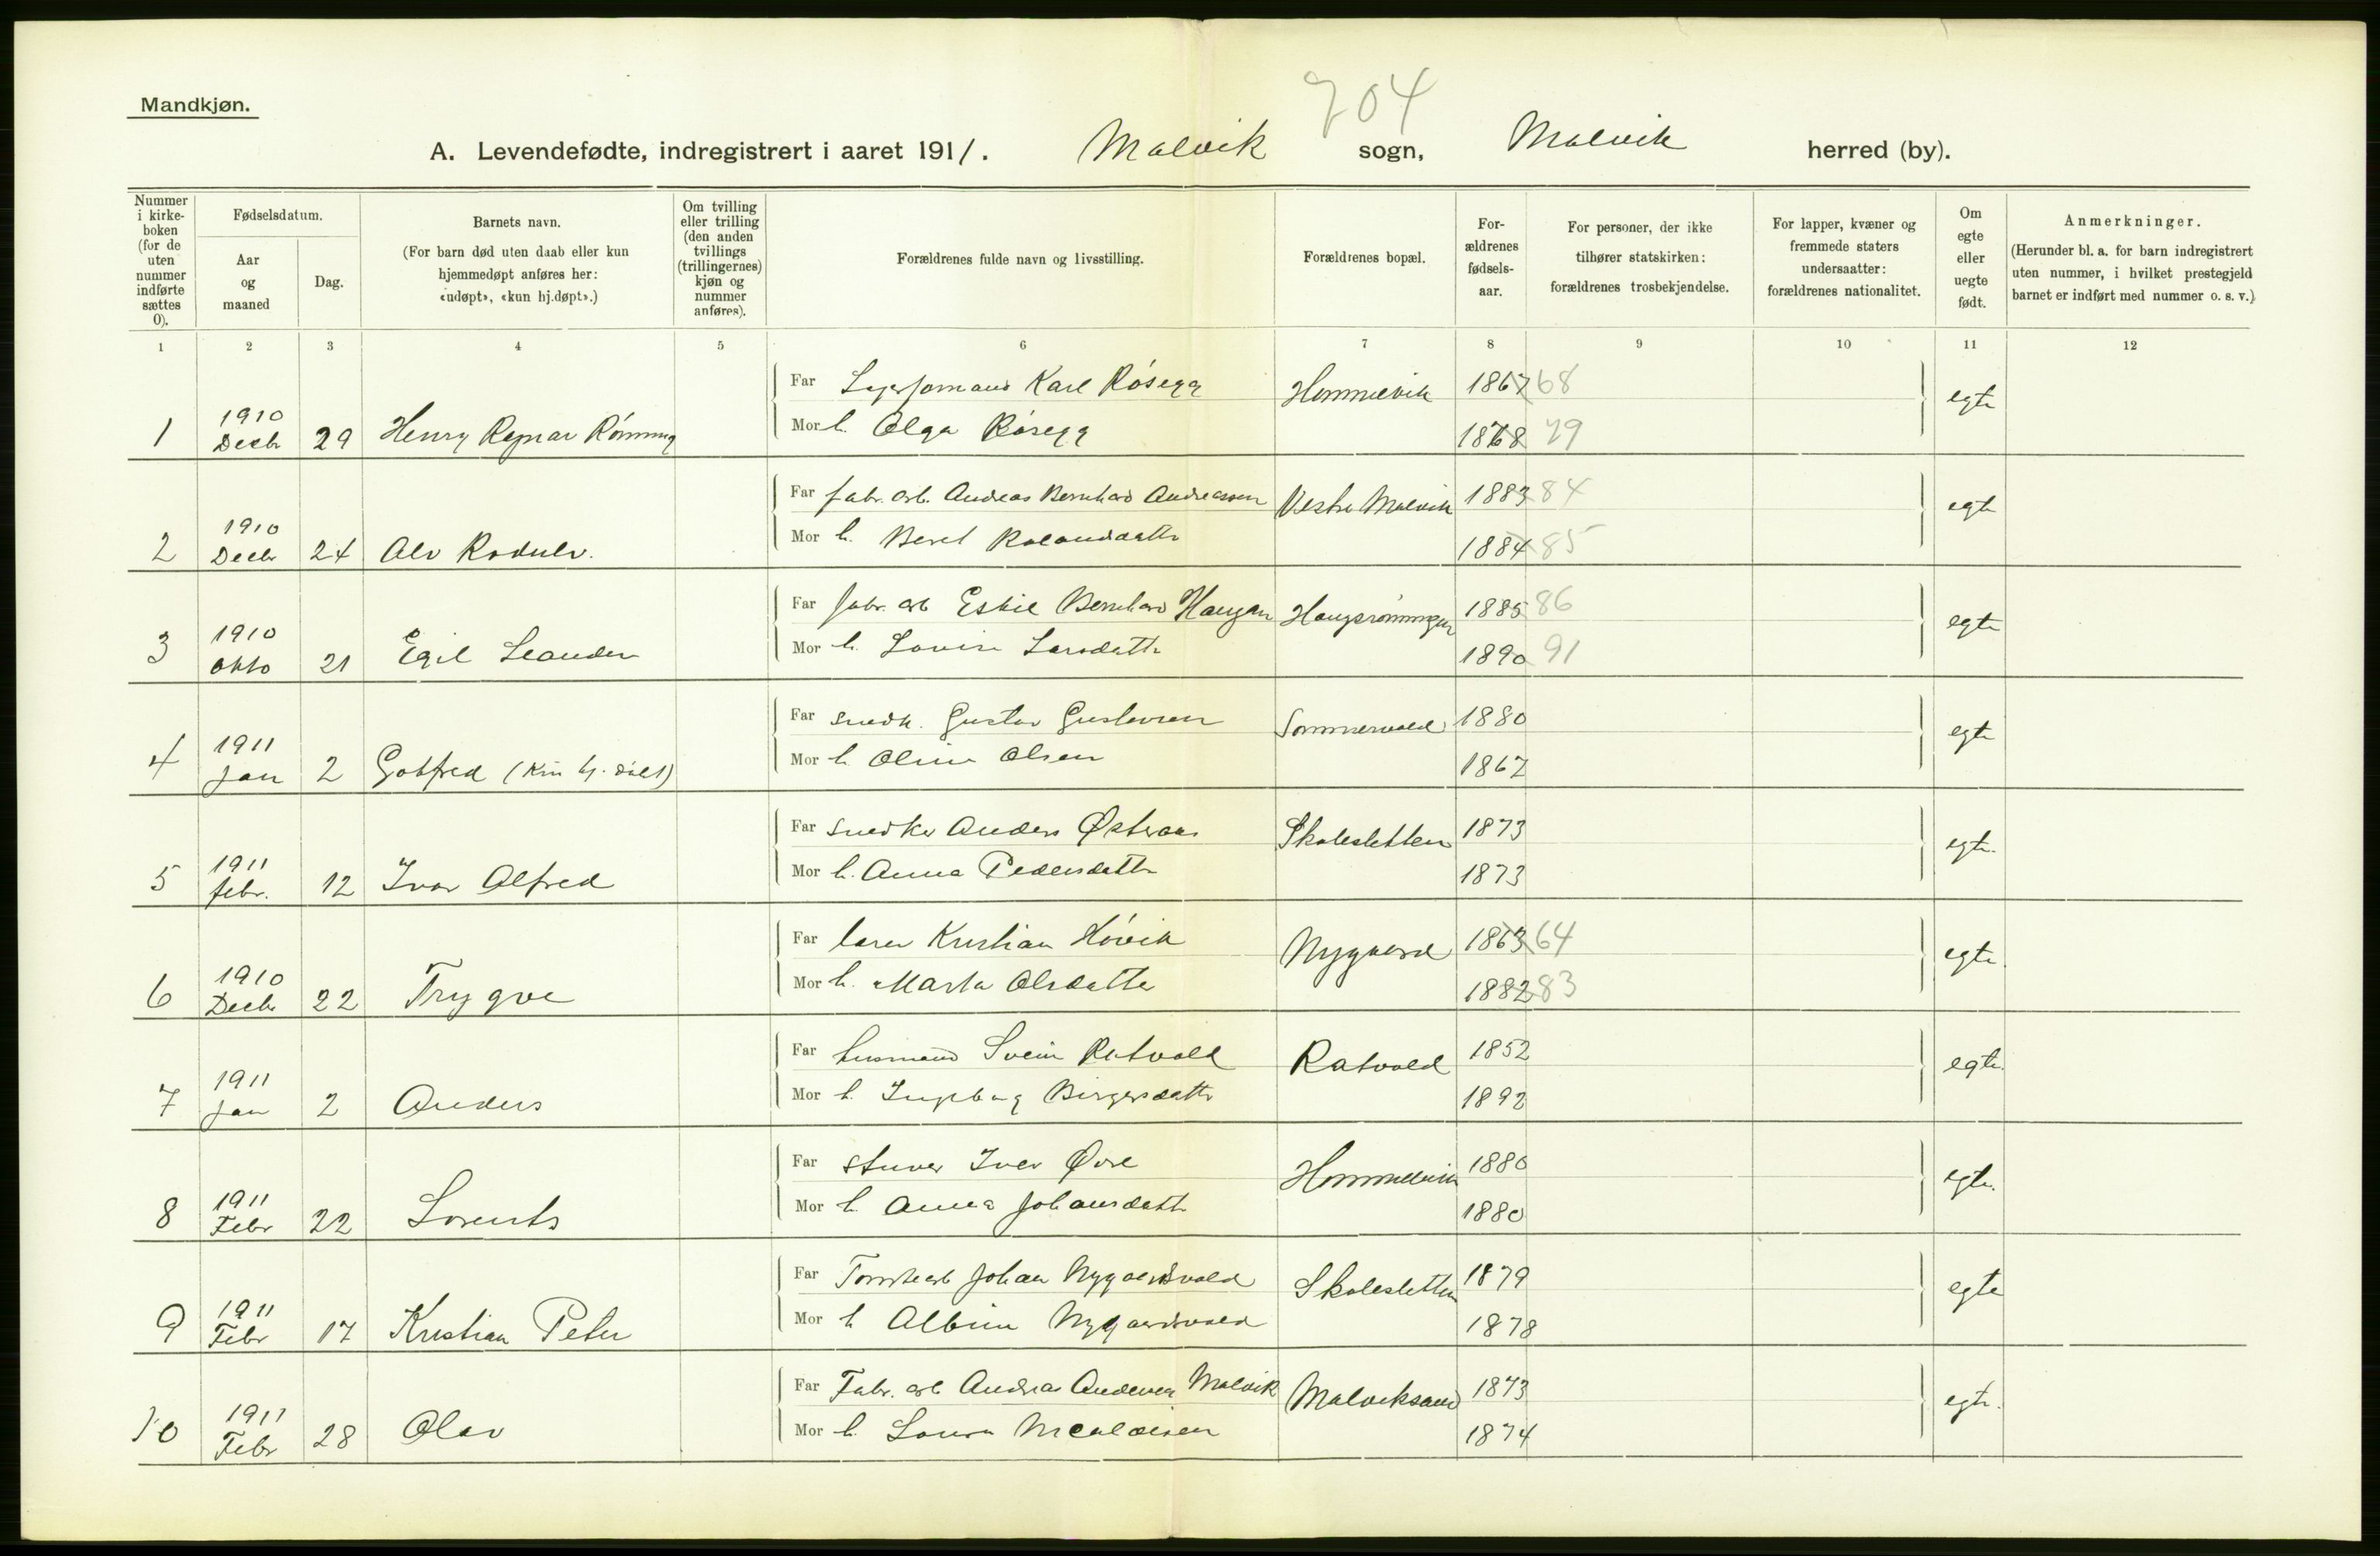 Mandkjøn.
704
A. Levendefødte, indregistrert i aaret 1911. Malvik sogn, Malvik herred (by).
Nummer i kirke-boken (for de uten nummer indførte sættes 0).
Fødselsdatum.
Aar og maaned
Dag.
Barnets navn.
(For barn død uten daab eller kun hjemmedøpt anføres her: «udøpt», «kun hj.døpt».)
Om tvilling eller trilling (den anden tvillings (trillingernes) kjøn og nummer anføres).
Forældrenes fulde navn og livsstilling.
Forældrenes bopæl.
For-ældrenes fødsels-aar.
For personer, der ikke tilhører statskirken: forældrenes trosbekjendelse.
For lapper, kvæner og fremmede staters undersaatter: forældrenes nationalitet.
Om egte eller uegte født.
Anmerkninger.
(Herunder bl. a. for barn indregistrert uten nummer, i hvilket prestegjeld barnet er indført med nummer o. s. v.)
1 2 3 4 5 6 7 8 9 10 11 12
Far Karl Røsegg Hommelvik 1867 68 egte
1 1910 Decbr 29 Henry Ragnar Rønning
Mor h. Olga Røsegg 1878 79
Far fabr. arb. Andreas Bernhard Andreassen Vestre Malvik 1883 84 egte
2 1910 Decbr 24 Alv Rodulv.
Mor h. Beret 1884 85
Far fabr. arb Eskil Bernhard Haugan 1885 86 egte
3 1910 okto 21 Egil Leander
Mor h. Lovise Larsdatter 1890 91
Far snedk. Gustav Gustavsen Sommervold 1880 egte
4 1911 Jan 2 Gotfred (kun hj. døbt)
Mor h. Oline Olsen 1867
Far snedker Anders Østeraas Skolesletten 1873 egte.
5 1911 febr. 12 Ivar Alfred
Mor h. Anna Pedersdatter 1873
Far lærer Kristian Høvik Nygaard 1863 64 egte
6 1910 Decbr 22 Trygve
Mor h. Marta Olsdatter 1882 83
Far husmand Svein Ratvold Ratvold 1852 egte.
7 1911 Jan 2 Anders
Mor h. Ingeborg Birgersdatter 1892
Far stuver Iver Øvre Hommelvik 1880 egte.
8 1911 Febr 22 Lorents
Mor h. Anna Johansdatter 1880
Far Tomtearb Johan Nygaardsvold Skolesletten 1879 egte
9 1911 Febr 17 Kristian Peter
Mor h Albine Nygaardsvold 1878
Far Fabr. arb Andreas Andersen Malvik Malviksand 1873 egte.
10 1911 Febr 28 Olav
Mor h. Laura 1874